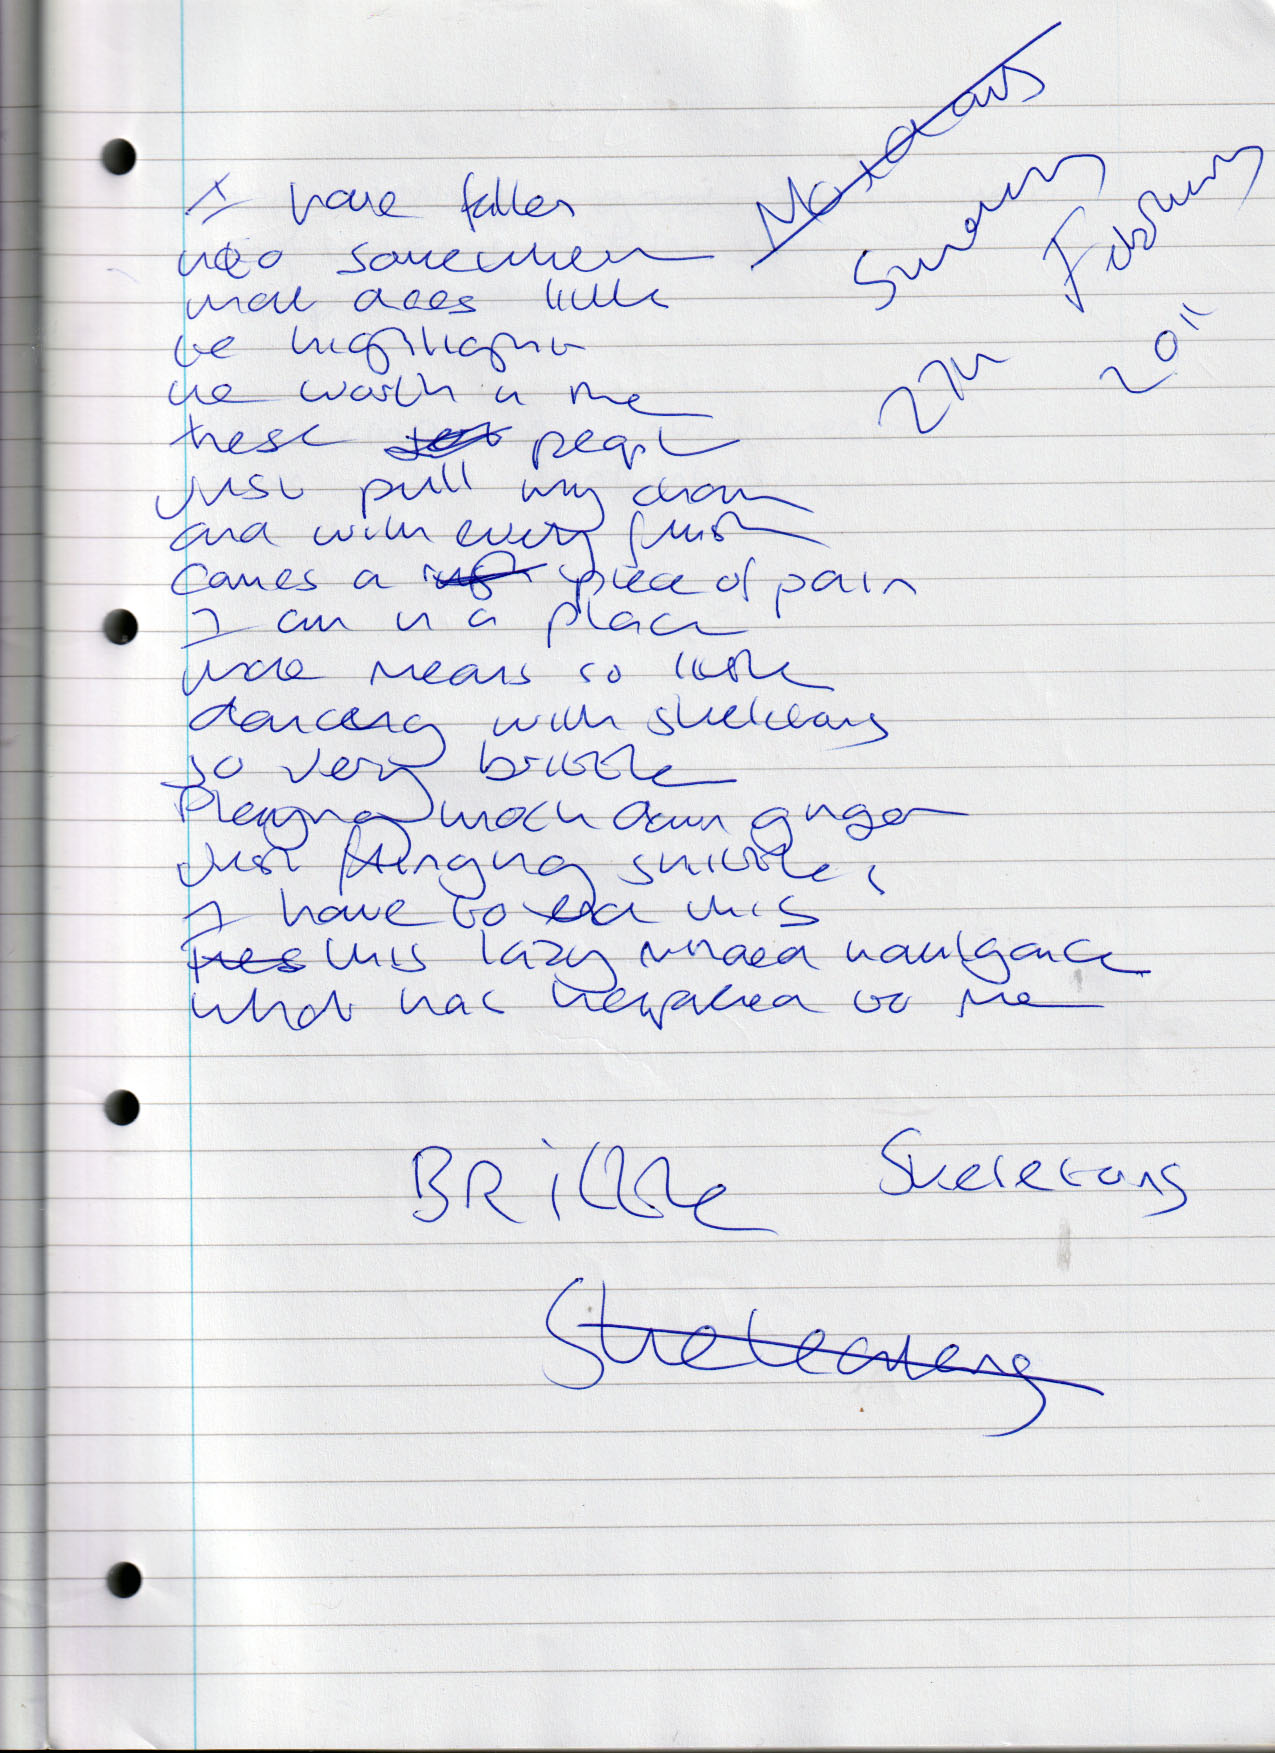 Sunday
27th February
2011
I have fallen
into somewhere
that does little
to highlight
the worth in me
these people
Just pull my chain
and with every flush
comes a piece of pain
I am in a place
more means so little
dancing with skeletons
so very brittle
Playing down ginger
Just flinging skittles
I have to end this
this lazy minded
what has happened to me
BRittle Skeletons